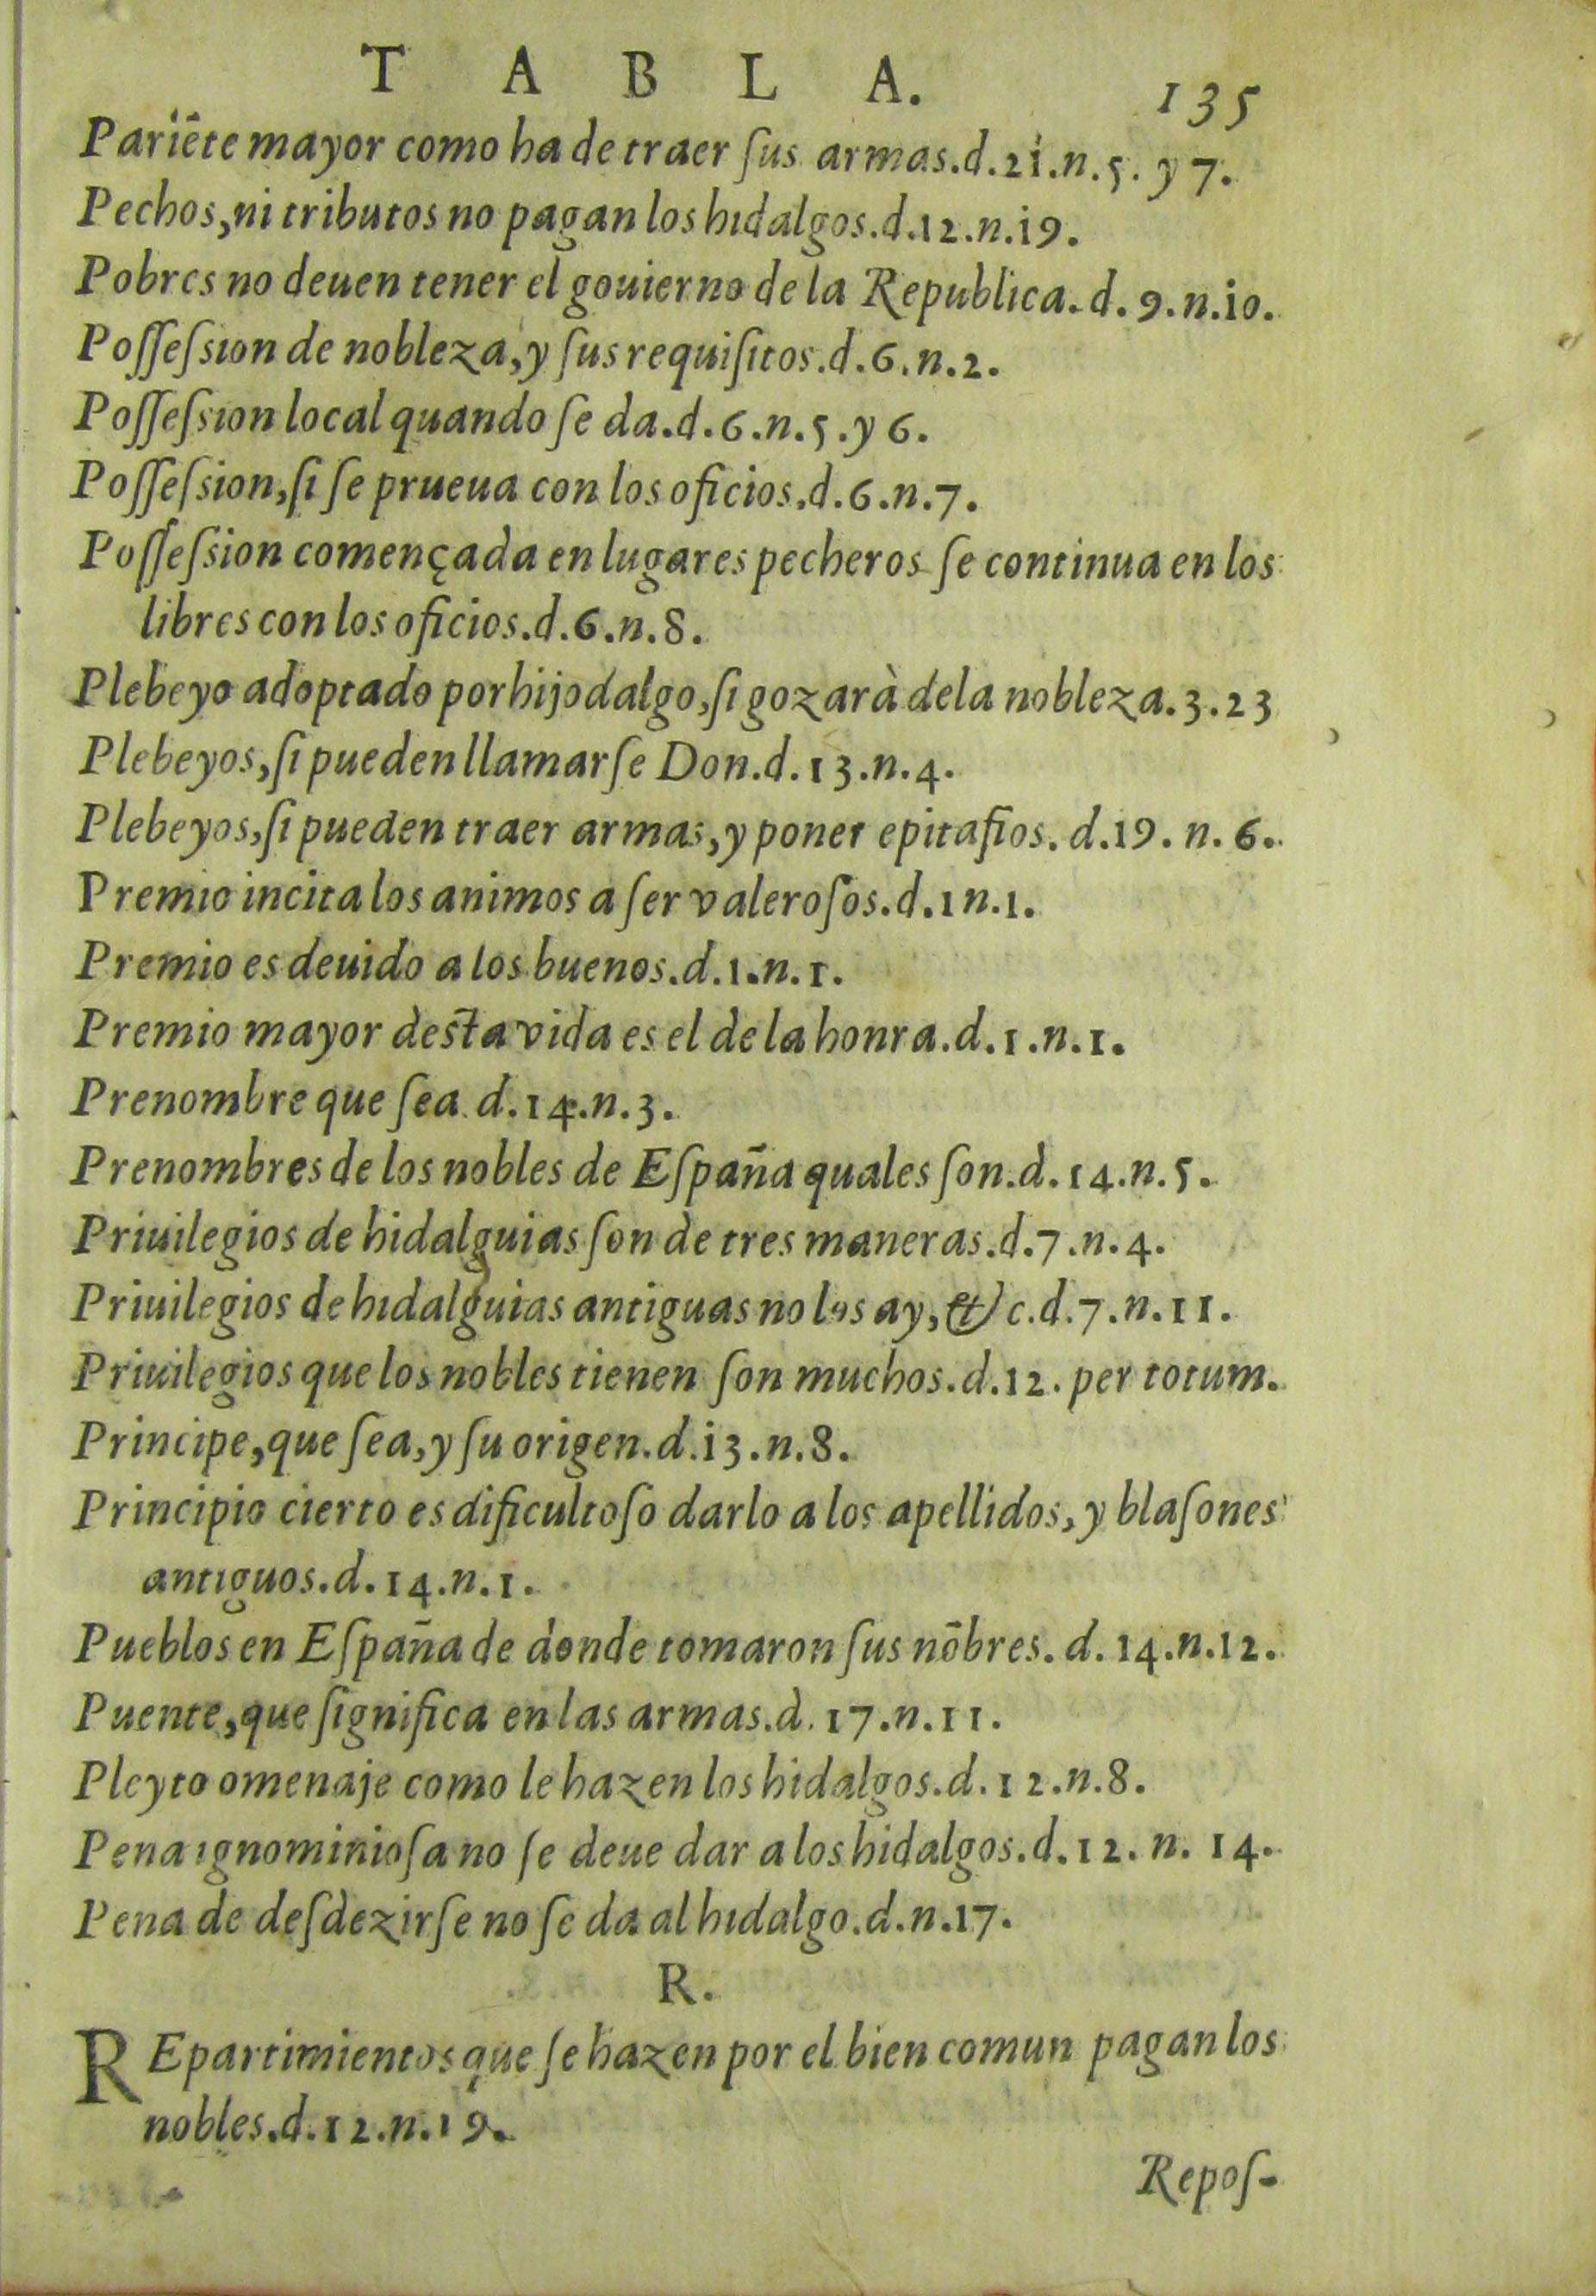 TABLA. 135
Pariēte mayor como ha de traer ſus armas.d.21.n.5. y 7.
Pechos,ni tributos no pagan los hidalgos.d.12.n.19.
Pobres no deuen tener el gouierno de la Republica.d.9.n.10.
Poſſeſsion de nobleza,y ſus requiſitos.d.6.n.2.
Poſſeſsion local quando ſe da.d.6.n.5.y 6.
Poſſeſsion,ſi ſe prueua con los oficios.d.6.n.7.
Poſſeſsion començada en lugares pecheros ſe continua en los
libres con los oficios.d.6.n.8.
Plebeyo adoptado por hijodalgo,ſi gozarà dela nobleza.3.23
Plebeyos,ſi pueden llamarſe Don.d.13.n.4.
Plebeyos,ſi pueden traer armas,y poner epitafios. d.19. n. 6.
Premio incita los animos a ſer valeroſos.d.1 n.1.
Premio es deuido a los buenos.d.1.n.1.
Premio mayor desta vida es el de la honra.d.1.n.1.
Prenombre que ſea d.14.n.3.
Prenombres de los nobles de Eſpaña quales ſon.d.14.n.5.
Priuilegios de hidalguias ſon de tres maneras.d.7.n.4.
Priuilegios de hidalguias antiguas no los ay,&c.d.7.n.11.
Priuilegios que los nobles tienen ſon muchos.d.12. per totum.
Principe,que ſea,y ſu origen.d.13.n.8.
Principio cierto es dificultoſo darlo a los apellidos, y blaſones
antiguos.d.14.n.1.
Pueblos en Eſpaña de donde tomaron ſus nōbres. d.14.n.12.
Puente,que ſignifica en las armas.d.17.n.11.
Pleyto omenaje como le hazen los hidalgos.d.12.n.8.
Pena ignominioſa no ſe deue dar a los hidalgos.d.12. n. 14.
Pena de deſdezirſe no ſe da al hidalgo.d.n.17.
R.
REpartimientos que ſe hazen por el bien comun pagan los
nobles.d.12.n.19.
Repoſ-